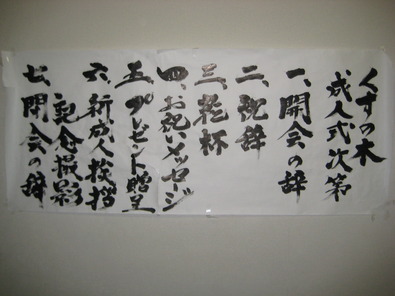 くすの木
成人式次第
一、開会の辞
二、祝辞
三、乾杯
四、お祝いメッセージ
五、プレゼント贈呈
六、新成人挨拶
記念撮影
七、閉会の辞